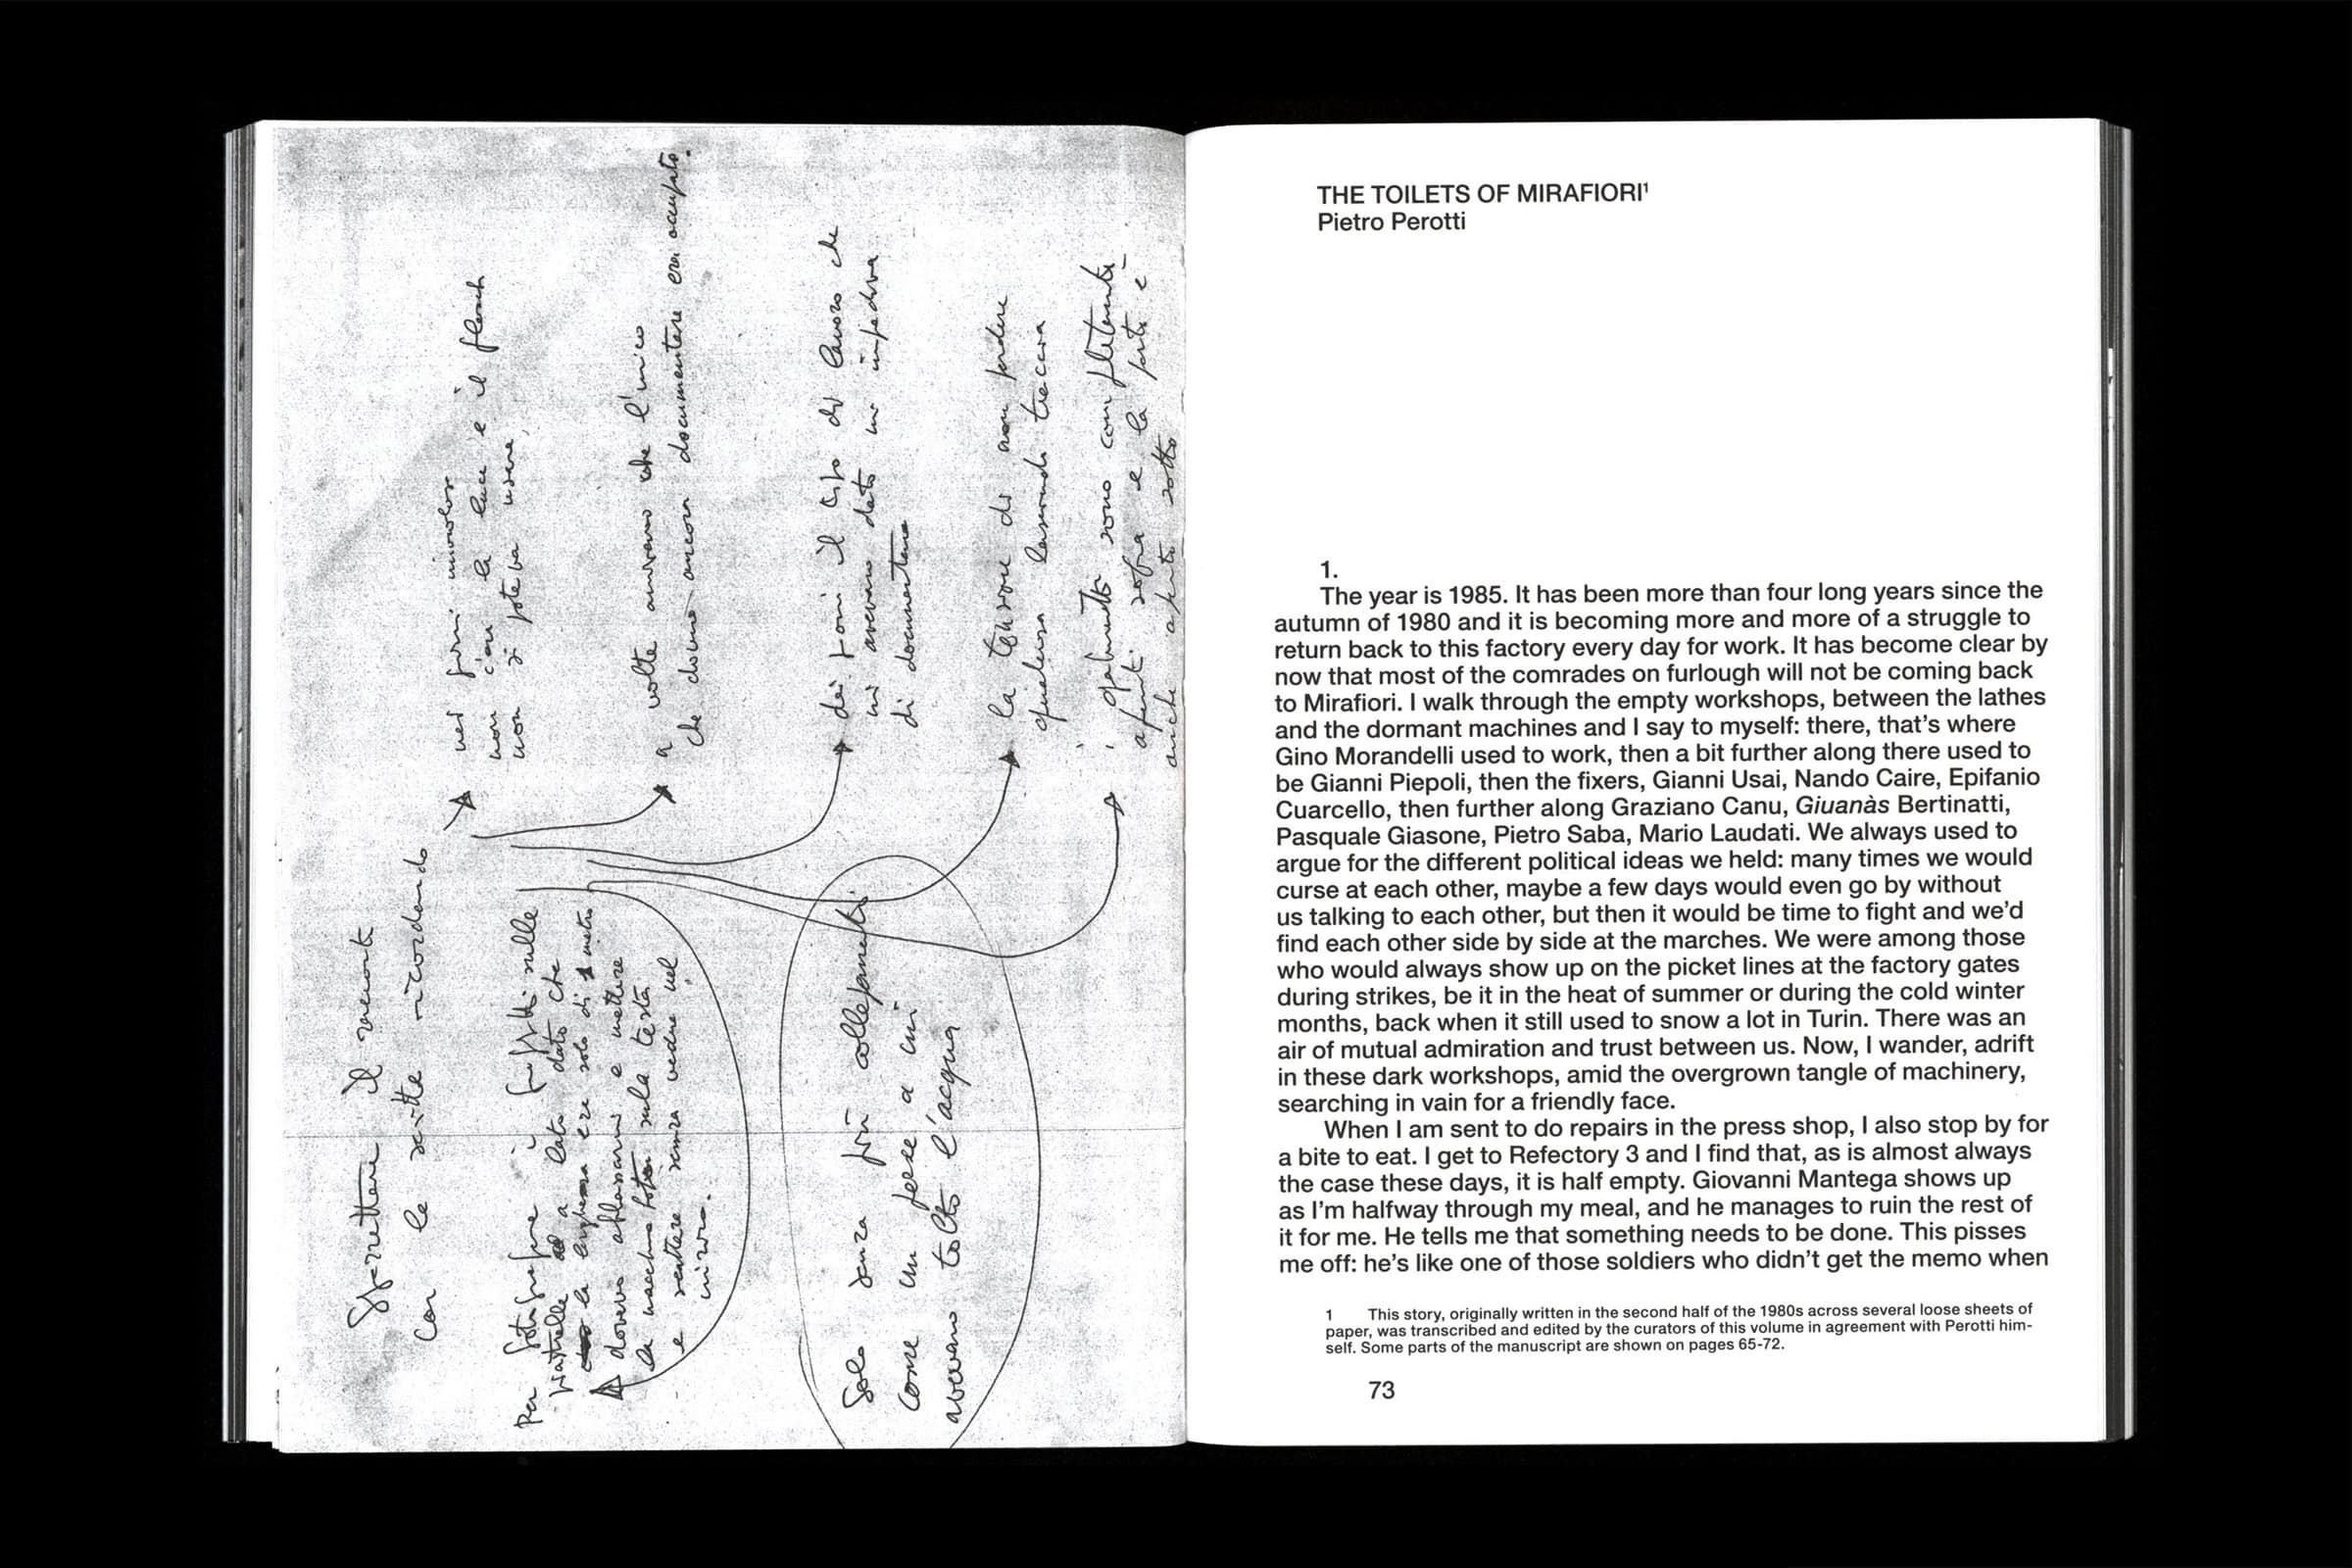 Spezzettare il racconto
con le scritte ricordando
Per fotografare i graffiti sulle
piastrelle a lato dato che
la larghezza era solo di 1 metro
dovevo abbassarmi e mettere
la macchina sulla testa
e scattare senza vedere nel
mirino.
Solo senza più collegamenti
come un pesce a cui
avevano tolto l'acqua
nei giorni nuvolosi
non c'era la luce e il flash
non si poteva usare,
a volte che l'unico
che dovevo ancora documentare era occupato.
dei giorni il tipo di lavoro che
mi avevano dato mi impediva
di documentare
la tensione di non perdere
qualcosa lasciando traccia
i gabinetti sono completamente
aperti sopra e la porta è
anche aperta sotto
THE TOILETS OF MIRAFIORI¹
Pietro Perotti
1.
The year is 1985. It has been more than four long years since the
autumn of 1980 and it is becoming more and more of a struggle to
return back to this factory every day for work. It has become clear by
now that most of the comrades on furlough will not be coming back
to Mirafiori. I walk through the empty workshops, between the lathes
and the dormant machines and I say to myself: there, that’s where
Gino Morandelli used to work, then a bit further along there used to
be Gianni Piepoli, then the fixers, Gianni Usai, Nando Caire, Epifanio
Cuarcello, then further along Graziano Canu, Giuanàs Bertinatti,
Pasquale Giasone, Pietro Saba, Mario Laudati. We always used to
argue for the different political ideas we held: many times we would
curse at each other, maybe a few days would even go by without
us talking to each other, but then it would be time to fight and we’d
find each other side by side at the marches. We were among those
who would always show up on the picket lines at the factory gates
during strikes, be it in the heat of summer or during the cold winter
months, back when it still used to snow a lot in Turin. There was an
air of mutual admiration and trust between us. Now, I wander, adrift
in these dark workshops, amid the overgrown tangle of machinery,
searching in vain for a friendly face.
When I am sent to do repairs in the press shop, I also stop by for
a bite to eat. I get to Refectory 3 and I find that, as is almost always
the case these days, it is half empty. Giovanni Mantega shows up
as I’m halfway through my meal, and he manages to ruin the rest of
it for me. He tells me that something needs to be done. This pisses
me off: he’s like one of those soldiers who didn’t get the memo when
1 This story, originally written in the second half of the 1980s across several loose sheets of
paper, was transcribed and edited by the curators of this volume in agreement with Perotti him-
self. Some parts of the manuscript are shown on pages 65-72.
73